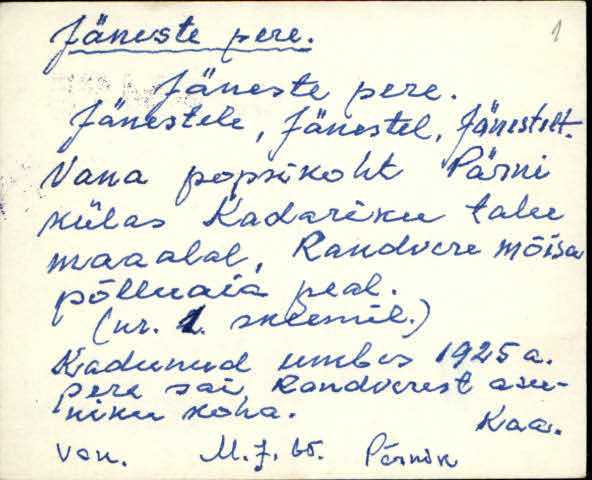 Jäneste pere.
1
Jäneste pere.
Jänestele, Jänestel, Jänestelt.
Vana popsikoht Pärni
külas Kadariku talu
maaalal, Randvere mõisa
põlluaia peal.
(nr. 1. skeemil.)
Kadunud umbes 1925 a.
pere sai Randverest asu-
niku koha.
Kaa.
Von. M. J. 65. Pärnik